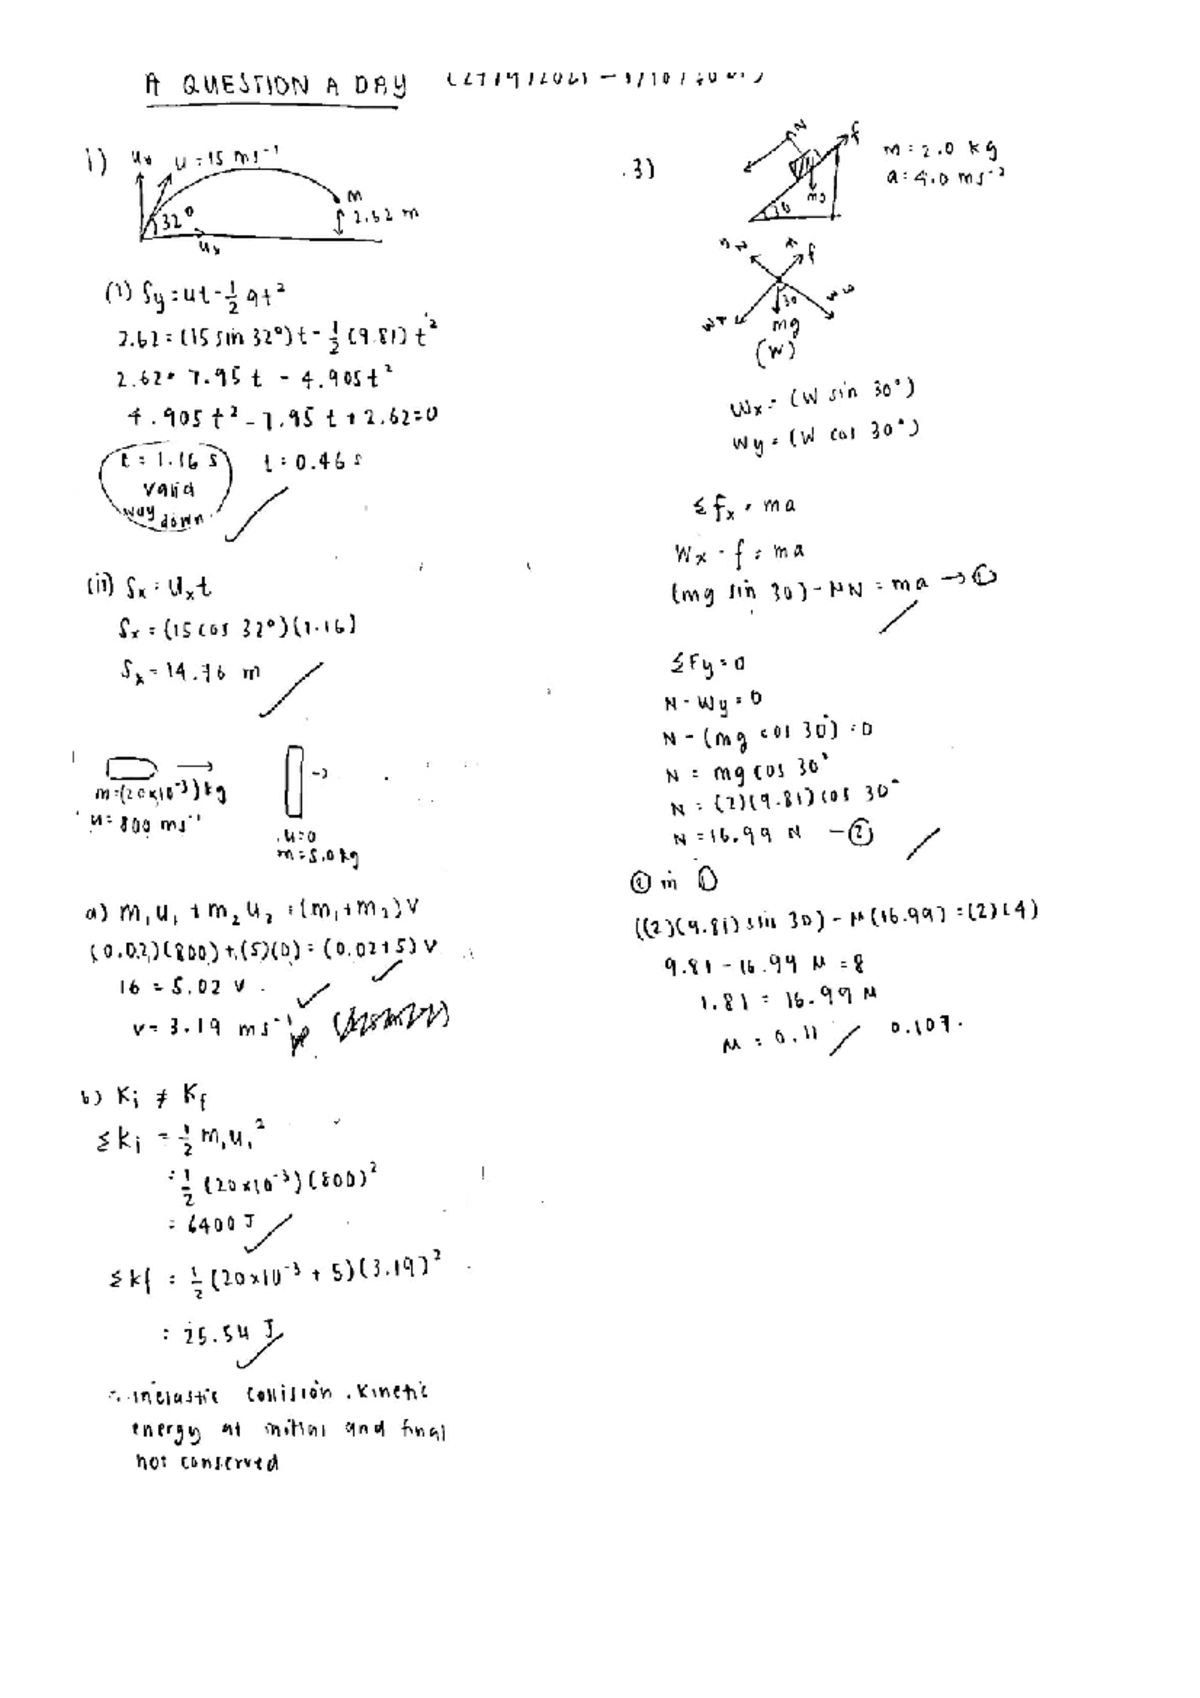 A QUESTION A DAY
1) u = 15 ms⁻¹
m
2.62 m
32°
uₓ
(i) Sy = ut - ½gt²
2.62 = (15 sin 32°)t - ½(9.81)t²
2.62 = 7.95t - 4.905t²
4.905t² - 7.95t + 2.62 = 0
t = 1.16 s t = 0.46 s
valid
way down
(ii) Sx = Uxt
Sx = (15 cos 32°)(1.16)
Sx = 14.76 m
m = (20×10⁻³) kg
u = 800 ms⁻¹
u = 0
m = 5.0 kg
a) m₁u₁ + m₂u₂ = (m₁+m₂)v
(0.02)(800) + (5)(0) = (0.02+5)v
16 = 5.02 v
v = 3.19 ms⁻¹
b) Ki ≠ Kf
ΣKi = ½m₁u₁²
= ½(20×10⁻³)(800)²
= 6400 J
ΣKf = ½(20×10⁻³ + 5)(3.19)²
= 25.54 J
∴ inelastic collision. Kinetic
energy at initial and final
not conserved
3) f
mg
30
m = 2.0 kg
a = 4.0 ms⁻²
f
30
mg
(W)
Wx = (W sin 30°)
Wy = (W cos 30°)
Σfx = ma
Wx - f = ma
(mg sin 30) - μN = ma → ①
ΣFy = 0
N - Wy = 0
N - (mg cos 30°) = 0
N = mg cos 30°
N = (2)(9.81) cos 30°
N = 16.99 N - ②
② in ①
((2)(9.81) sin 30) - μ(16.99) = (2)(4)
9.81 - 16.99 μ = 8
1.81 = 16.99 μ
μ = 0.11 0.107.